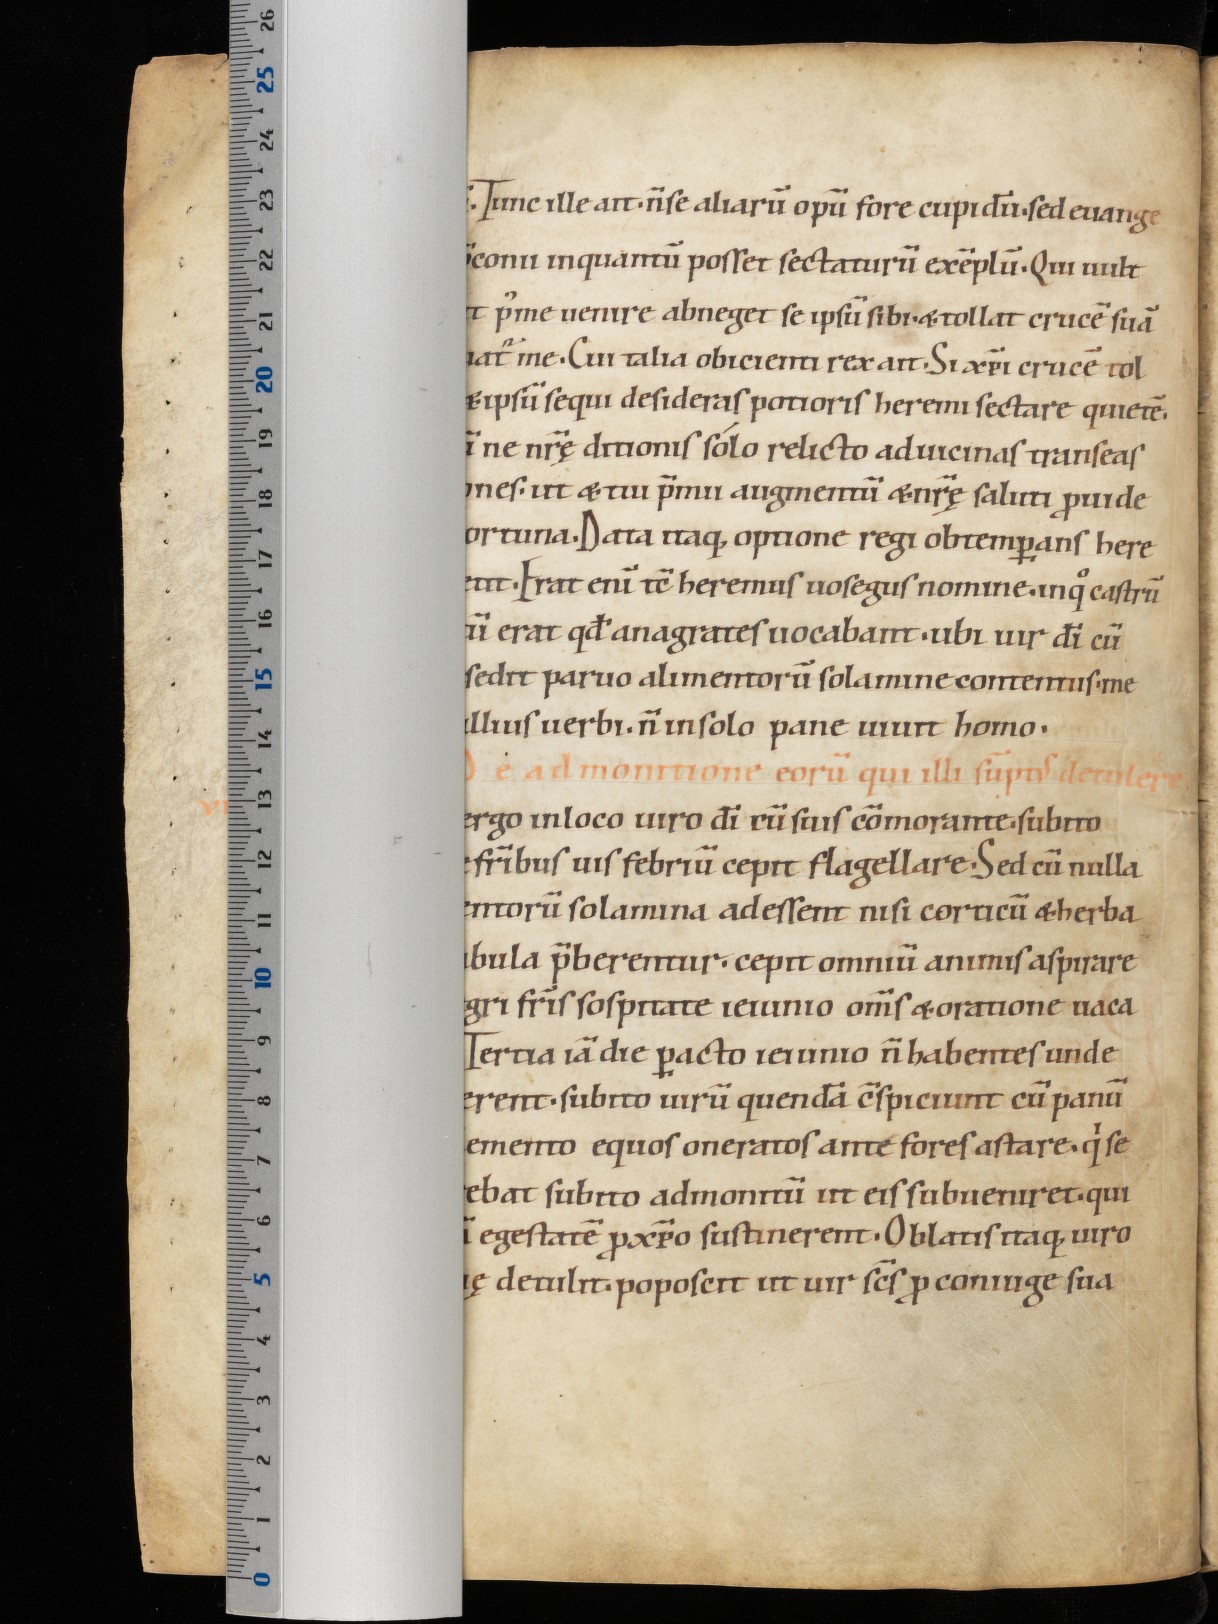 Tunc ille ait· n̄ se aliarū opū fore cupidū· sed euange
conii inquantū posset sectaturū exēplū· Qui uult
p᾽ me uenire abneget se ipsū sibi· & tollat crucē suā
me· Cui talia obicienti rex ait· Si xp̄i crucē tol
& ipsū sequi desideras potioris heremi sectare quietē·
ne nr̄ę ditionis solo relicto aduicinas transeas
ut & tui p̄mii augmentū & nr̄ę saluti ꝓuide
ortuna· Data itaq; optione regi obtemꝑans here
Erat enī tc̄ heremus uosegus nomine· inqͦ castrū
erat qd̄ anagrates uocabant· ubi uir dī cū
sedit paruo alimentorū solamine contentus· me
illius uerbi· n̄ insolo pane uiuit homo·
De admonitione eorū qui illi sūptꝰ detulere
VI
ergo inloco uiro dī cū suis cōmorante· subito
fr̄ibus uis febriū cepit flagellare· Sed cū nulla
entorū solamina adessent nisi corticū & herba
bula p̄berentur· cepit omniū animis aspirare
gri fr̄is sospitate ieiunio om̄s & oratione uaca
Tertia iā die ꝑacto ieiunio n̄ habentes unde
erent· subito uirū quendā c̄spiciunt cū panū
emento equos oneratos ante fores astare· qⁱ se
ebat subito admonitū ut eis subueniret· qui
egestatē ꝓ xp̄o sustinerent· Oblatis itaq; uiro
ę detulit· poposcit ut uir sc̄s ꝓ coniuge sua
26
25
24
23
22
21
20
19
18
17
16
15
14
13
12
11
10
9
8
7
6
5
4
3
2
1
0